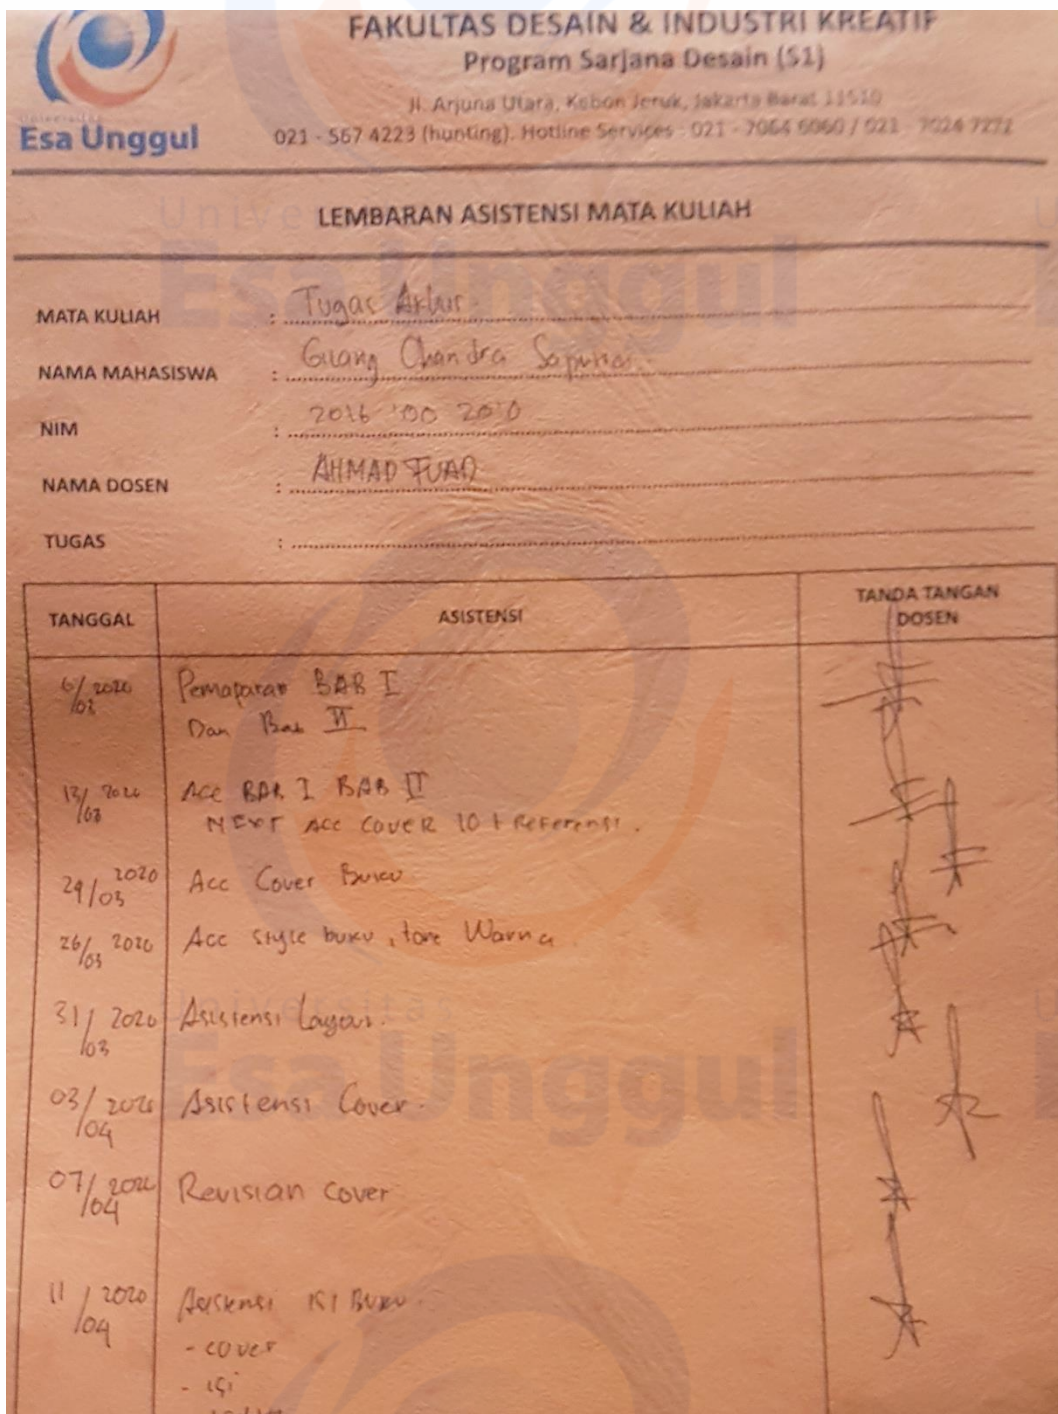 FAKULTAS DESAIN & INDUSTRI KREATIF
Program Sarjana Desain (S1)
Jl. Arjuna Utara, Kebon Jeruk, Jakarta Barat 11510
021 - 567 4223 (hunting). Hotline Services : 021 - 7064 6060 / 021 - 7024 7272
Universitas
Esa Unggul
LEMBARAN ASISTENSI MATA KULIAH
MATA KULIAH : Tugas Akhir
NAMA MAHASISWA : Gilang Chandra Saputra
NIM : 2016
NAMA DOSEN : AHMAD FUAD
TUGAS :
TANGGAL ASISTENSI TANDA TANGAN DOSEN
6/03 2020 Pemaparan BAB I
Dan Bab II
13/03 2020 Acc BAB I BAB II
NEXT Acc COVER 10 + Referensi.
29/03 2020 Acc Cover Buku
26/03 2020 Acc style buku, tone Warna
31/03 2020 Asistensi Layout.
03/04 2020 Asistensi Cover.
07/04 2020 Revisian Cover
11/04 2020 Asistensi isi Buku.
- cover
- isi